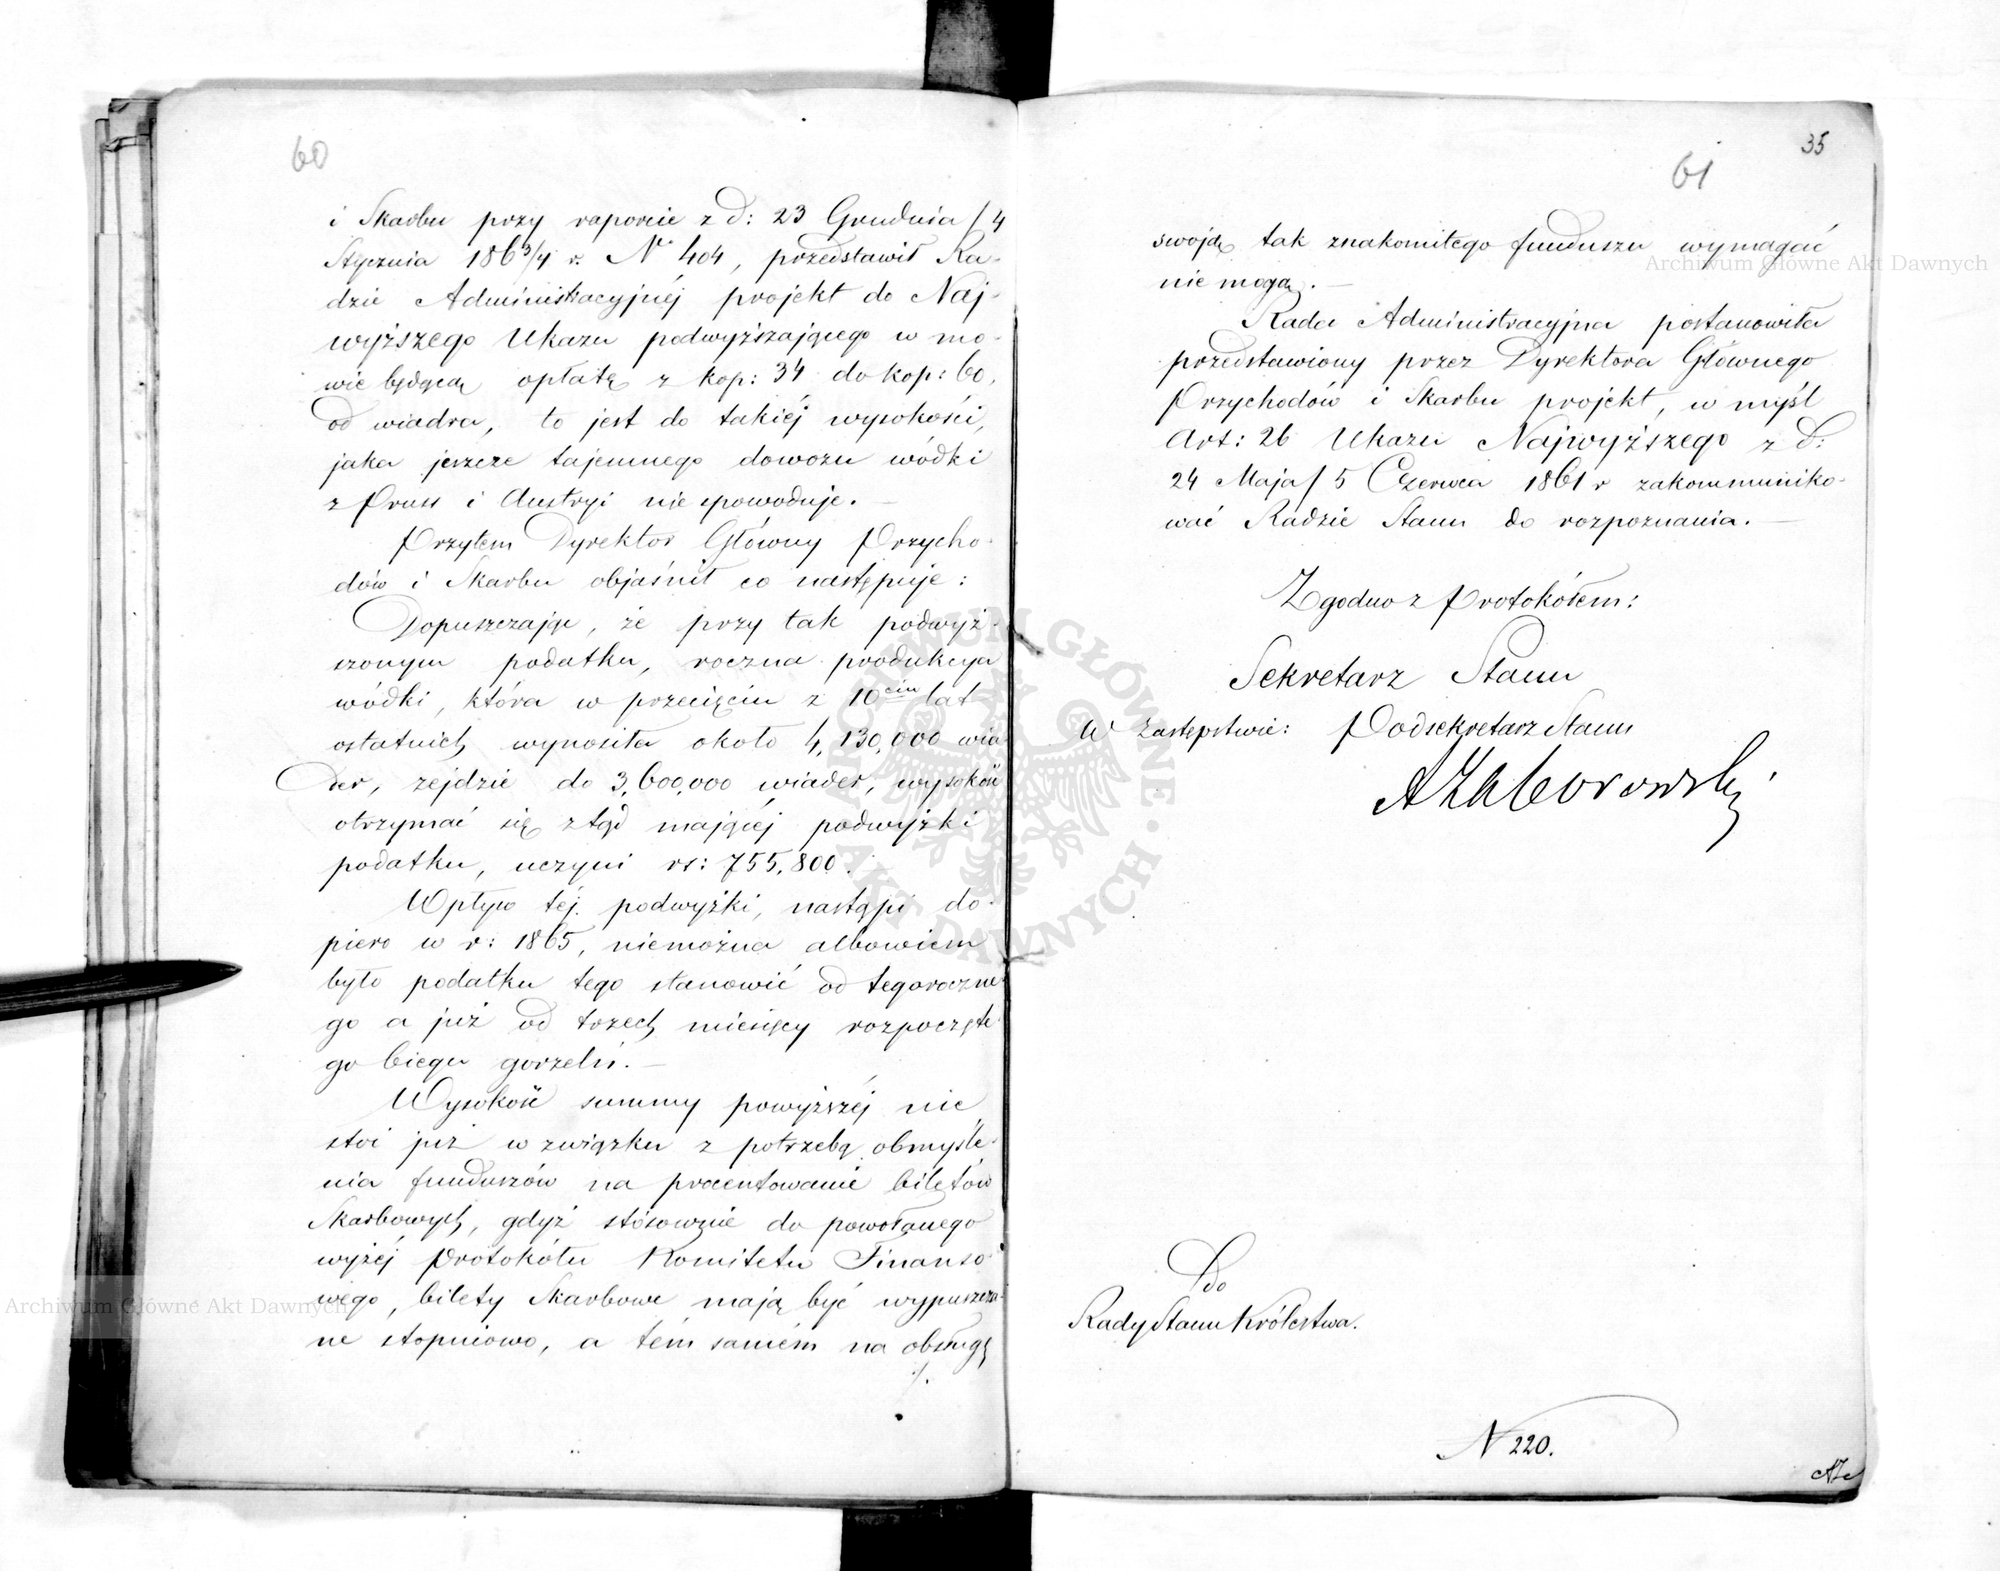 60
i Skarbu przy raporcie z d: 23 Grudnia / 4
Stycznia 186 3/4 r. N° 404, przedstawił Ra-
dzie Administracyjnéj projekt do Naj-
wyższego Ukazu podwyższającego w mo-
wie będącą opłatę z kop: 34 do kop: 60,
od wiadra, to jest do takiéj wysokości,
jaka jeszcze tajemnego dowozu wódki
z Pruss i Austryi nie spowoduje. —
Przytem Dyrektor Główny Przycho-
dów i Skarbu objaśnił co następuje:
Dopuszczając, że przy tak podwyż-
szonym podatku, roczna produkcya
wódki, która w przecięciu z 10ciu lat
ostatnich wynosiła około 4,130,000 wia-
der, zejdzie do 3,600,000 wiader, wysokość
otrzymać się ztąd mającéj podwyżki
podatku, uczyni rs: 755,800.
Wpływ téj podwyżki, nastąpi do-
piero w r: 1865, niemożna albowiem
było podatku tego stanowić od tegoroczne-
go a już od trzech miesięcy rozpoczęte-
go biegu gorzelń. —
Wysokość summy powyższéj nie
stoi już w związku z potrzebą obmyśle-
nia funduszów na procentowanie biletów
Skarbowych, gdyż stósownie do powołanego
wyżéj Protokółu Komitetu Finanso-
wego, bilety Skarbowe mają być wypuszcza-
ne stopniowo, a tém samém na obsługę
./.
35
61
swoją tak znakomitego funduszu wymagać
nie mogą. —
Rada Administracyjna postanowiła
przedstawiony przez Dyrektora Głównego
Przychodów i Skarbu projekt, w myśl
Art: 26 Ukazu Najwyższego z d:
24 Maja / 5 Czerwca 1861 r zakommuniko-
wać Radzie Stanu do rozpoznania. —
Zgodno z Protokółem:
Sekretarz Stanu
w Zastępstwie: Podsekretarz Stanu
AZaborowski
Do
Rady Stanu Królestwa.
N 220.
Archiwum Główne Akt Dawnych
Archiwum Główne Akt Dawnych
ARCHIWUM GŁÓWNE AKT DAWNYCH